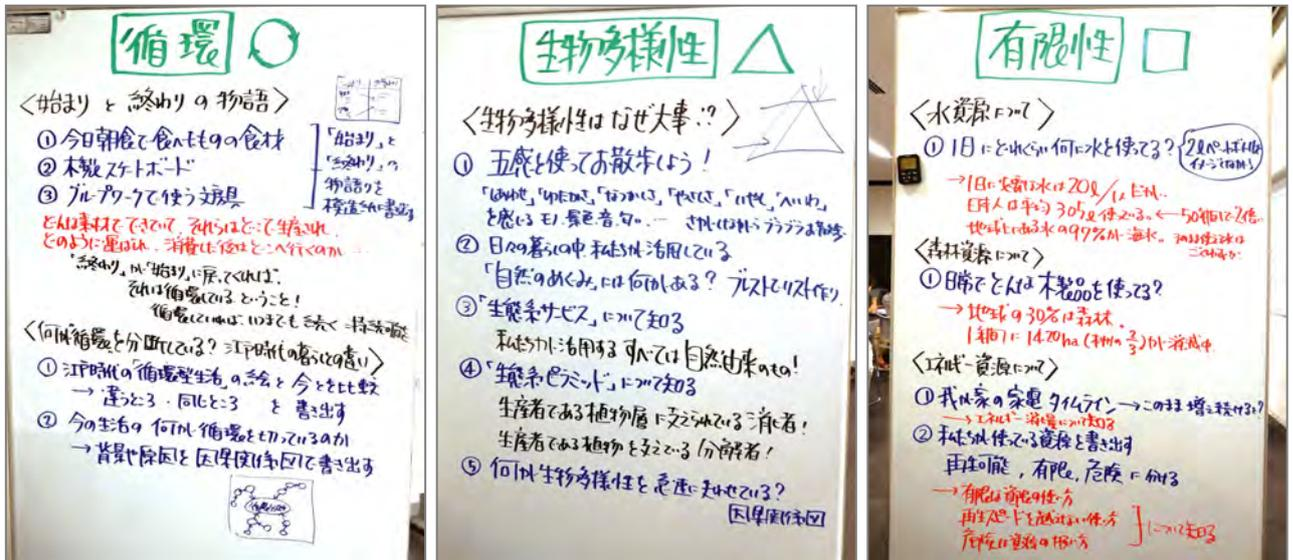 循環
〈始まりと終わりの物語〉
① 今日朝食で食べたものの食材
② 木製スケートボード
③ グループワークで使う文房具
「始まり」と
「終わり」の
物語りを
模造紙に書き出す
どんな素材でできていて、それらはどこで生産され、
どのように運ばれ、消費した後はどこへ行くのか…
「終わり」が「始まり」に戻ってくれば、
それは循環しているということ！
循環していれば、いつまでも続く＝持続可能
〈何が循環を分断している？江戸時代の暮らしとの違い〉
① 江戸時代の「循環型生活」の絵と今とを比較
→ 違うところ・同じところ を書き出す
② 今の生活の何が循環を切っているのか
→ 背景や原因を因果関係図で書き出す
生物多様性
〈生物多様性はなぜ大事？〉
① 五感を使ってお散歩しよう！
「しあわせ」「ゆたかさ」「なつかしさ」「やさしさ」「いやし」「へいわ」
を感じるモノ、景色、音、匂い…
② 日々の暮らしの中、私たちが活用している
「自然のめぐみ」には何がある？ ブレストでリスト作り
③「生態系サービス」について知る
私たちが活用するすべては自然由来のもの！
④「生態系ピラミッド」について知る
生産者である植物層に支えられている消費者！
生産者である植物を支えている分解者！
⑤ 何が生物多様性を急速に失わせている？
因果関係図
有限性
〈水資源について〉
① 1日にどれくらい何に水を使ってる？
2ℓペットボトルを
イメージしてみよう
→ 1日に必要な水は20ℓ/1人だが、
日本人は平均305ℓ使っている。← 50年前に比べ2倍
地球上にある水の97%が海水。
〈森林資源について〉
① 日常でどんな木製品を使ってる？
→ 地球の30%は森林。
〈エネルギー資源について〉
① 我が家の家電タイムライン → このまま増え続けると？
→ エネルギー消費量について知る
② 私たちが使っている資源を書き出す
再生可能、有限、危険に分ける
→ 有限な資源の使い方
再生スピードを越さない使い方
危険な資源の扱い方
について知る